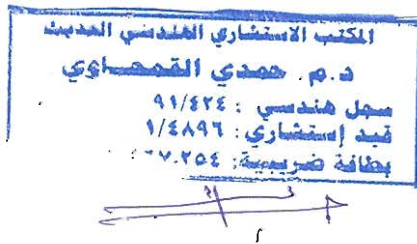 المكتب الاستشاري الهندسي الحديث
د.م. حمدي القمحاوي
سجل هندسي : ٩١/٤٢٤
قيد إستشاري: ١/٤٨٩٦
بطاقة ضريبية: ٦٧.٢٥٤